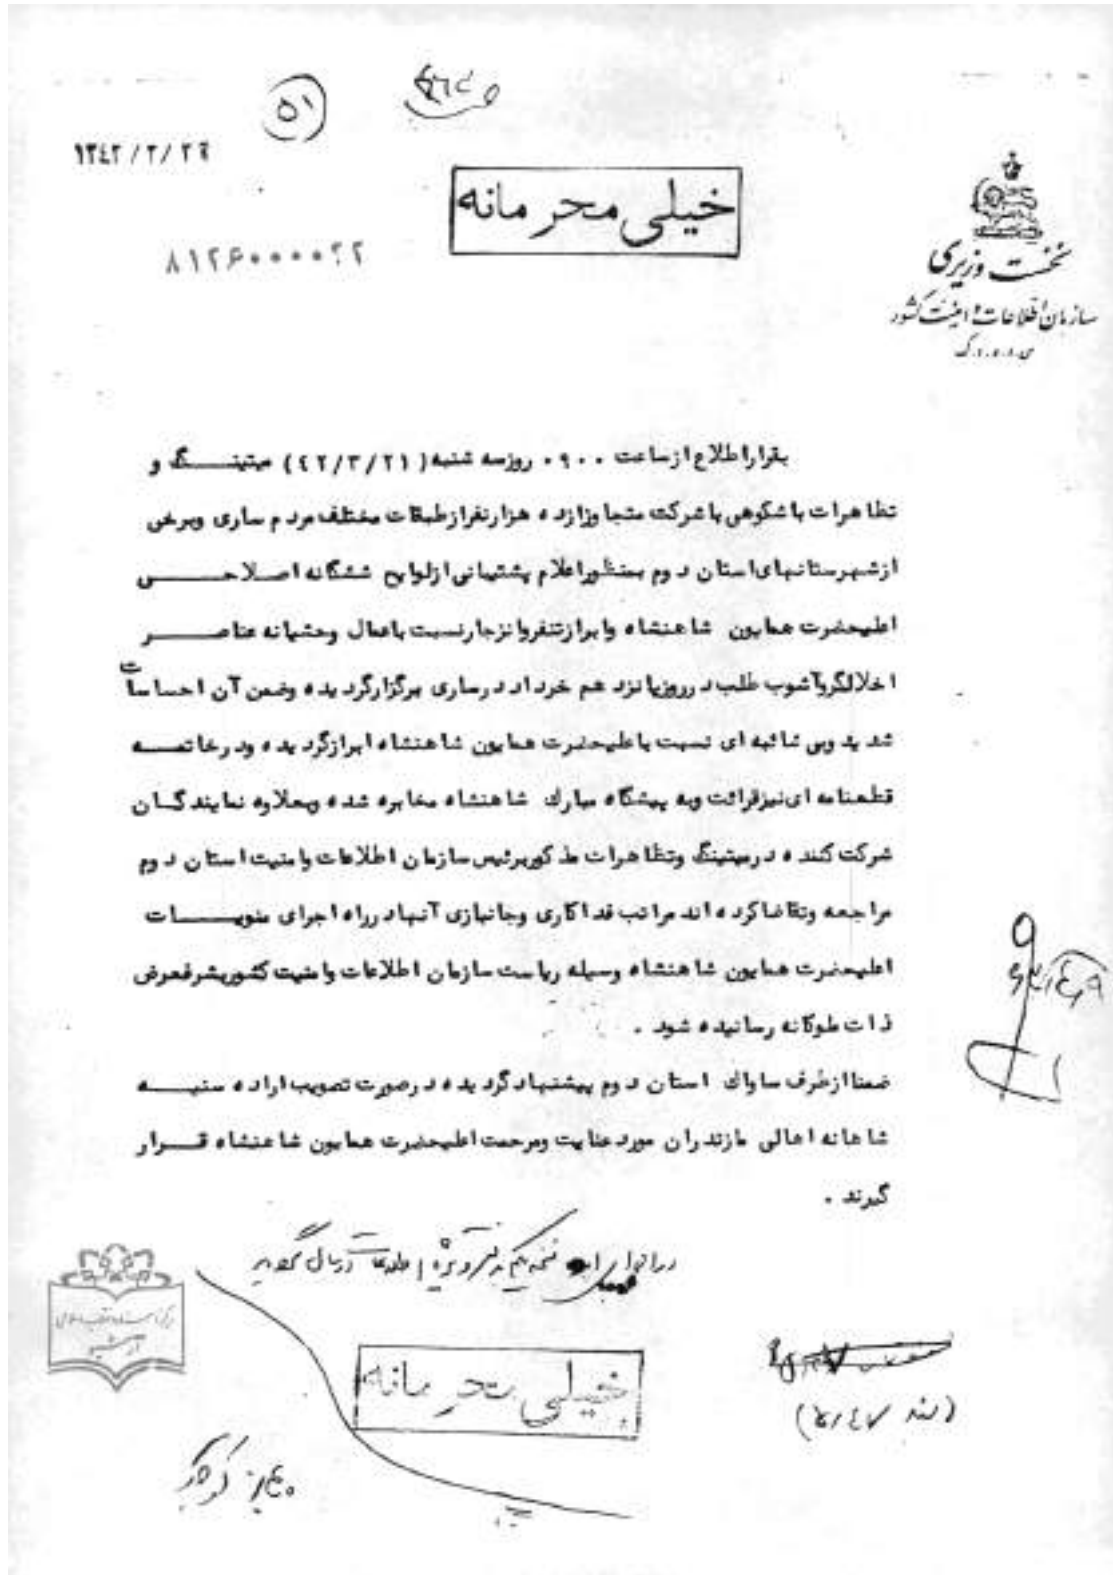 ۵۱
۱۳۴۲/۳/۲۹
خیلی محرمانه
نخست وزیری
سازمان اطلاعات و امنیت کشور
س.ا.و.ا.ک
بقرار اطلاع از ساعت ۰۹۰۰ روز سه شنبه (۴۲/۳/۲۱) میتینگ و
تظاهرات باشکوهی با شرکت متجاوز از ده هزار نفر از طبقات مختلف مردم ساری و برخی
از شهرستانهای استان دوم بمنظور اعلام پشتیبانی از لوایح ششگانه اصلاحی
اعلیحضرت همایون شاهنشاه و ابراز تنفر و انزجار نسبت باعمال وحشیانه عناصر
اخلالگر و آشوب طلب در روز پانزدهم خرداد در ساری برگزار گردیده و ضمن آن احساسات
شدید و بی شائبه ای نسبت باعلیحضرت همایون شاهنشاه ابراز گردیده و در خاتمه
قطعنامه ای نیز قرائت و به پیشگاه مبارک شاهنشاه مخابره شده و بعلاوه نمایندگان
شرکت کننده در میتینگ و تظاهرات مذکور برئیس سازمان اطلاعات و امنیت استان دوم
مراجعه و تقاضا کرده اند مراتب فداکاری و جانبازی آنها در راه اجرای منویات
اعلیحضرت همایون شاهنشاه وسیله ریاست سازمان اطلاعات و امنیت کشور بشرفعرض
ذات ملوکانه رسانیده شود .
ضمنا از طرف ساواک استان دوم پیشنهاد گردیده در صورت تصویب اراده سنیه
شاهانه اهالی مازندران مورد عنایت و مرحمت اعلیحضرت همایون شاهنشاه قرار
گیرند .
خیلی محرمانه